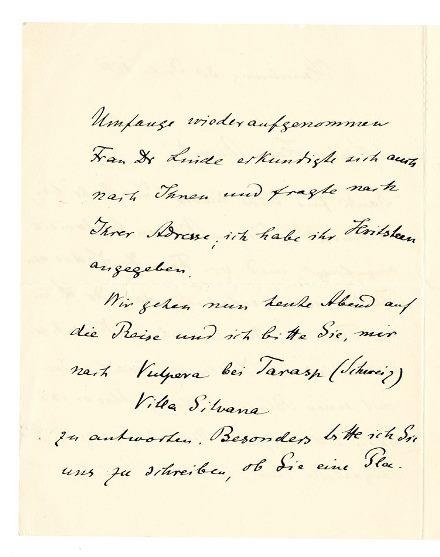 Umfange wiederaufgenommen
Frau Dr Linde erkundigte sich auch
nach Ihnen und fragte nach
Ihrer Adresse, ich habe ihr
angegeben.
Wir gehen nun heute Abend auf
die Reise und ich bitte Sie, mir
nach Vulpera bei Tarasp (Schweiz)
Villa Silvana
zu antworten. Besonders bitte ich Sie
uns zu schreiben, ob Sie eine Pla-